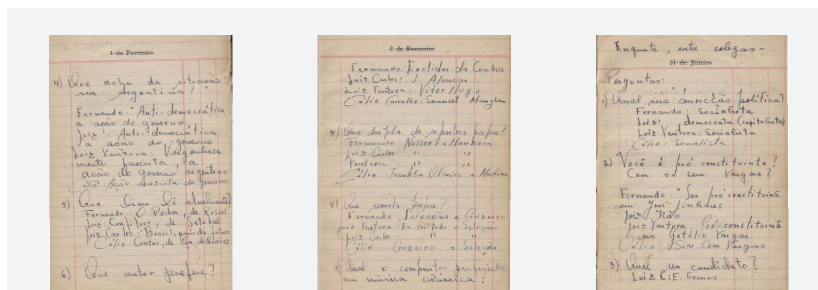 1 de Fevereiro
4) Que acha da situação
na Argentina?
Fernando: Anti-democrática
a ação do governo
Luiz: Anti-democrática
a ação do governo
Luiz Ventura: Vergonhosa
mente fascista, a
ação do governo argentino
Célio: Ação nazista do governo
5) Que livro lê atualmente?
Fernando: O Poder, de Russel
Luiz Carlos: Brasil, país do futuro
Célio: Contos, de
6) Que autor prefere?
2 de Fevereiro
Fernando: Euclides da Cunha
Luiz Carlos: J. Alencar
Luiz Ventura: Vitor Hugo
Célio Carvalho: Somerset Maugham
7) Que dupla de reporters prefere?
Fernando: Nasser e Manzon
Luiz Carlos " "
Ventura: " "
Célio: Franklin Oliveira e Medina
8) Que revista prefere?
Fernando: Seleções e Cruzeiro
Luiz Ventura: e Seleções
Luiz Carlos
Célio: Cruzeiro e Seleção
9) Qual o compositor preferido
na música clássica?
Enquete, entre colegas-
31 de Janeiro
Perguntas:
1) Qual sua convicção política?
Fernando: Socialista
Luiz: democrata (capitalista)
Luiz Ventura: Socialista
Célio: Socialista
2) Você é pró constituinte?
Com ou sem Vargas?
Fernando: "Sou pró constituinte
com José Linhares
Luiz: Não
Luiz Ventura: Pró-constituinte
com Getúlio Vargas
Célio: Sim Com Vargas
3) Qual seu candidato?
Luiz C: E. Gomes